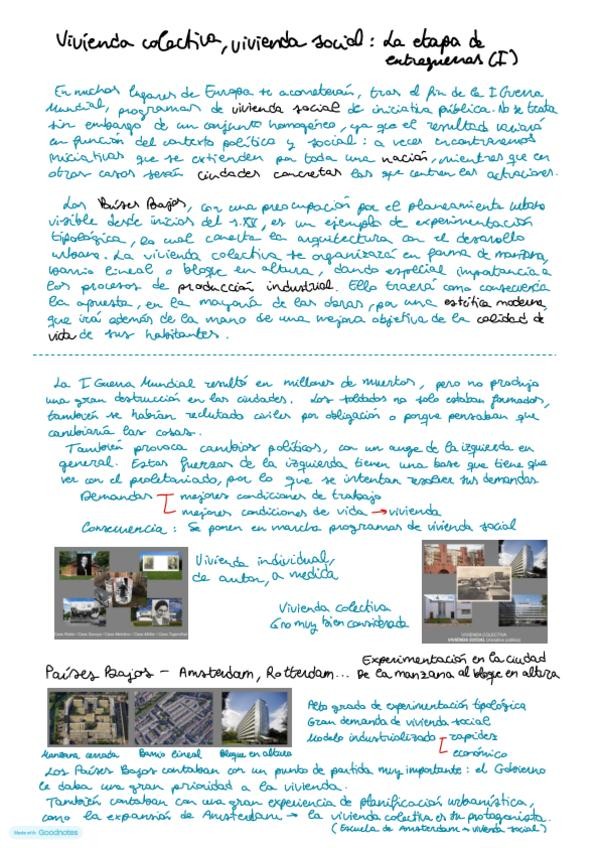 Vivienda colectiva, vivienda social: La etapa de
entreguerras (I)
En muchos lugares de Europa se acometerán, tras el fin de la I Guerra
Mundial, programas de vivienda social de iniciativa pública. No se trata
sin embargo de un conjunto homogéneo, ya que el resultado variará
en función del contexto político y social: a veces encontraremos
iniciativas que se extienden por toda una nación, mientras que en
otros casos serán ciudades concretas las que centren las actuaciones.
Los Países Bajos, con una preocupación por el planeamiento urbano
visible desde inicios del s.XX, es un ejemplo de experimentación
tipológica, la cual conecta la arquitectura con el desarrollo
urbano. La vivienda colectiva se organizará en forma de manzana,
barrio lineal o bloque en altura, dando especial importancia a
los procesos de producción industrial. Ello traerá como consecuencia
la apuesta, en la mayoría de las obras, por una estética moderna,
que irá además de la mano de una mejora objetiva de la calidad de
vida de sus habitantes.
La I Guerra Mundial resultó en millones de muertos, pero no produjo
una gran destrucción en las ciudades. Los soldados no solo estaban formados,
también se habían reclutado civiles por obligación o porque pensaban que
cambiaría las cosas.
También provoca cambios políticos, con un auge de la izquierda en
general. Estas fuerzas de la izquierda tienen una base que tiene que
ver con el proletariado, por lo que se intentan resolver sus demandas
Demandas mejores condiciones de trabajo
mejores condiciones de vida → vivienda
Consecuencia: Se ponen en marcha programas de vivienda social
Vivienda individual,
de autor, a medida
Vivienda colectiva
Gro muy bien considerada
VIVIENDA COLECTIVA
VIVIENDA SOCIAL
Países Bajos - Amsterdam, Rotterdam...
Experimentación en la ciudad
De la manzana al bloque en altura
Alto grado de experimentación tipológica
Gran demanda de vivienda social
Modelo industrializado rapidez
económico
Manzana cerrada Barrio lineal Bloque en altura
Los Países Bajos contaban con un punto de partida muy importante: el Gobierno
le daba una gran prioridad a la vivienda.
También contaban con una gran experiencia de planificación urbanística,
como la expansión de Amsterdam → la vivienda colectiva es su protagonista.
(Escuela de Amsterdam → vivienda social)
Made with Goodnotes